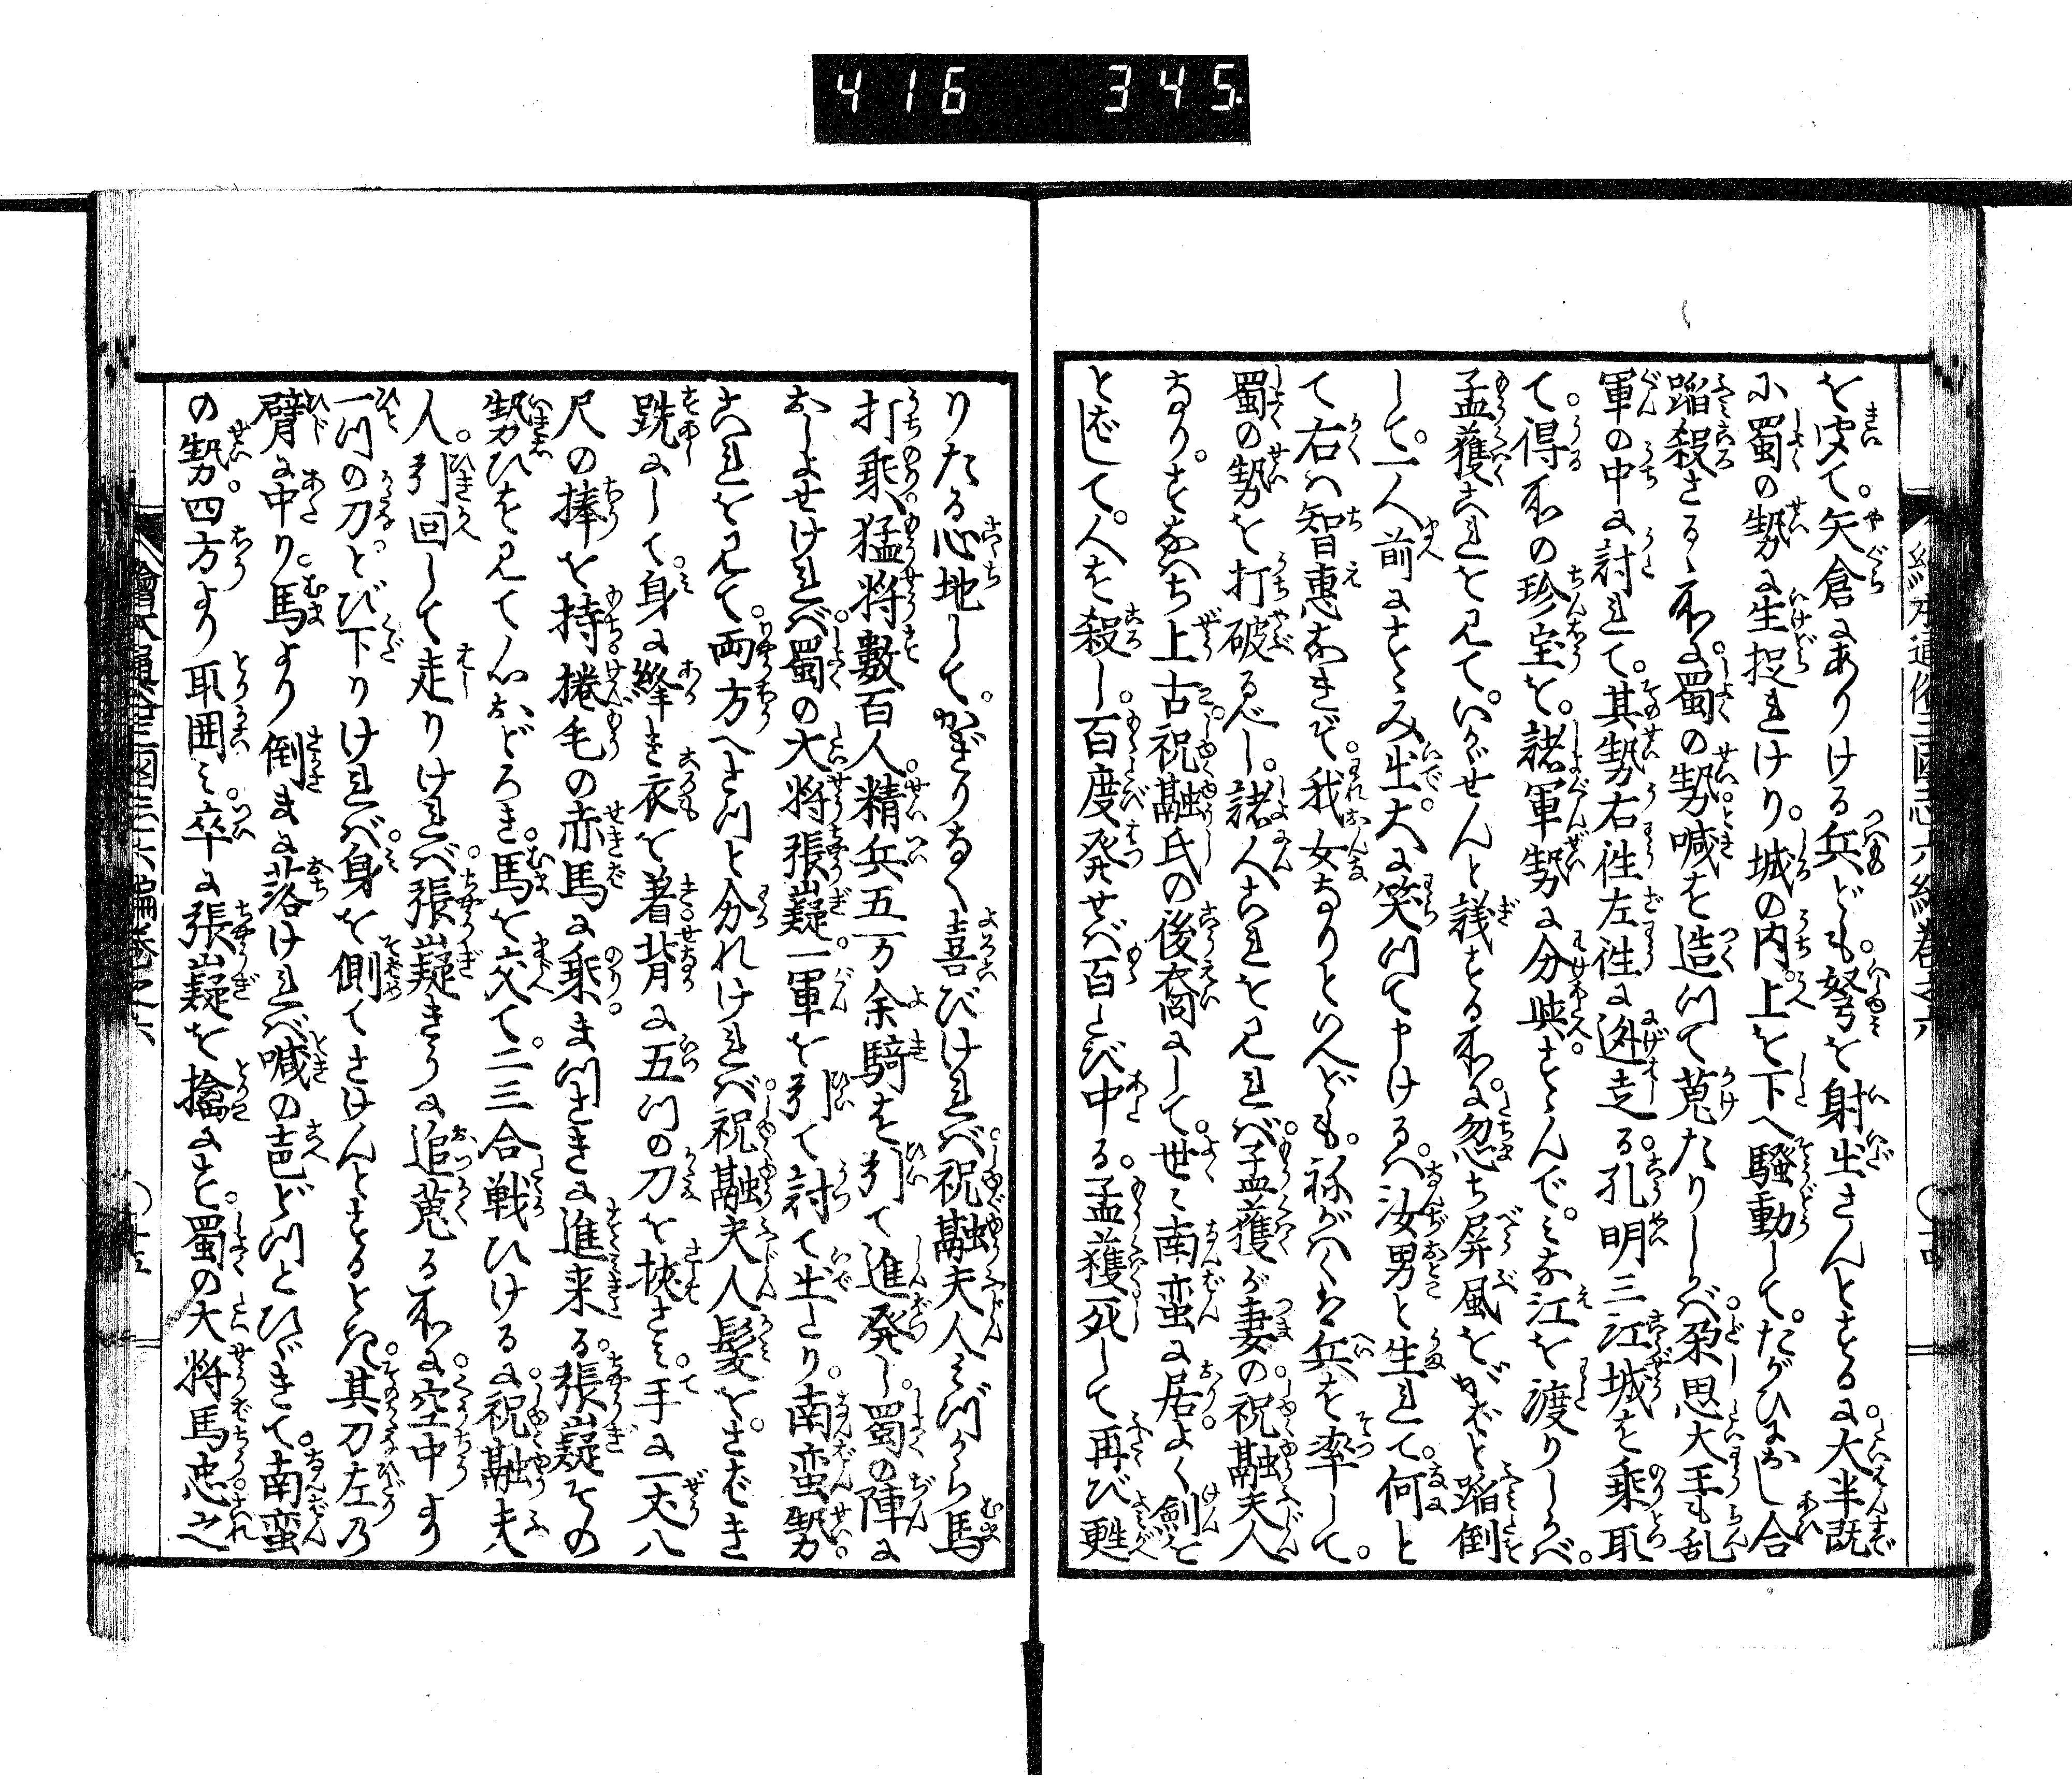 416 345
を支て。矢倉にありける兵ども。弩を射出さんとするに。大半既
に蜀の勢に生捉れけり。城の内。上を下へ騒動して。たがひにおし合
蹈殺さるゝ所に。蜀の勢。喊を造つて蒐たりしかば。朶思大王も乱
軍の中に討れて。其勢右往左往に迯走る。孔明三江城を乗取
て。得所の珍宝を。諸軍勢に分与。すゝんで。みな江を渡りしかば。
孟獲これを見て。いかゞせんと議する所に。忽ち屏風をがばと蹈倒
して。一人前にすゝみ出。大に笑つて申けるハ。汝男と生れて。何と
て右ハ智恵なきぞ。我女なりといへども。ねがハくは兵を率して。
蜀の勢を打破るべし。諸人これを見れバ。孟獲が妻の。祝融夫人
なり。すなハち上古。祝融氏の後裔にして。世々南蛮に居。よく剣を
とばして。人を殺し。百度発せば百たび中る。孟獲死して再び甦
りたる心地して。かぎりなく喜びけれバ。祝融夫人みづから馬
打乗。猛将数百人。精兵五万余騎を引て進発し。蜀の陣に
おしよせけれバ。蜀の大将張嶷。一軍を引て討て出たり。南蛮勢。
これを見て。両方へさつと分れけれバ。祝融夫人髪を。さばき
跣にして。身に絳き衣を着。背に五つの刀を挟さみ。手に一丈八
尺の捧を持。捲毛の赤馬に乗。まつさきに進来る。張嶷その
勢ひを見て心おどろき。馬を交て。二三合戦ひけるに。祝融夫
人。引回して走りけれバ。張嶷きうに追蒐る所に。空中より
一つの刀。とび下りけれバ。身を側てさけんとするとき。其刀左乃
臂に中り。馬より倒まに落けれバ。喊の声どつとひゞきて。南蛮
の勢。四方より取囲み。卒に張嶷を擒にす。蜀の大将馬忠。之